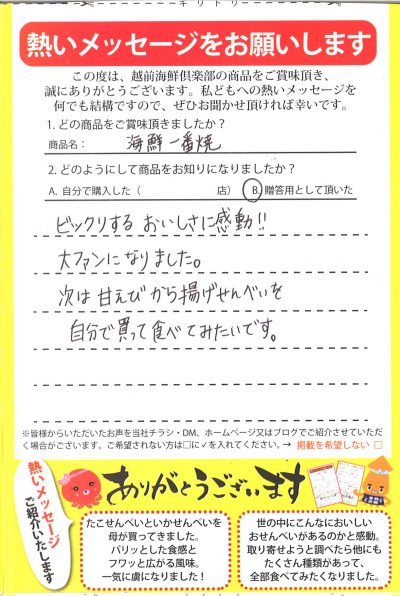 キリトリ
熱いメッセージをお願いします
この度は、越前海鮮倶楽部の商品をご賞味頂き、
誠にありがとうございます。私どもへの熱いメッセージを
何でも結構ですので、ぜひお聞かせ頂ければ幸いです。
1. どの商品をご賞味頂きましたか？
商品名： 海鮮一番焼
2. どのようにして商品をお知りになりましたか？
A. 自分で購入した（ 店） B. 贈答用として頂いた
ビックリする おいしさに感動!!
大ファンになりました。
次は 甘えび から揚げせんべいを
自分で買って食べてみたいです。
※皆様からいただいたお声を当社チラシ・DM、ホームページ又はブログでご紹介させていただ
く場合がございます。ご希望されない方は□に✓を入れてください。→ 掲載を希望しない □
熱いメッセージ
ご紹介いたします
ありがとうございます
たこせんべいといかせんべいを
母が買ってきました。
パリッとした食感と
フワッと広がる風味。
一気に虜になりました！
世の中にこんなにおいしい
おせんべいがあるのかと感動。
取り寄せようと調べたら他にも
たくさん種類があって、
全部食べてみたくなりました。